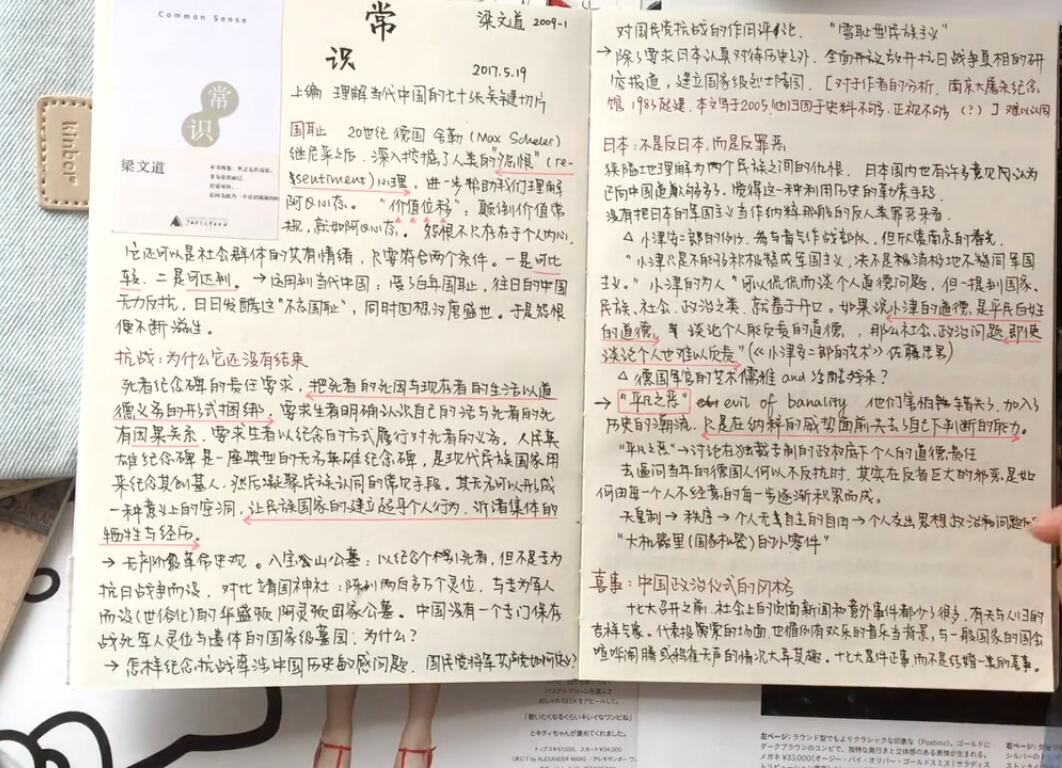 Common Sense
常
识
梁文道
常
识
梁文道 2009-1
2017.5.19
上编 理解当代中国的七十张关键切片
国耻 20世纪 德国 舍勒 (Max Scheler)
继尼采之后,深入挖掘了人类的"怨恨"(re-
ssentiment)心理,进一步帮助我们理解
阿Q心态。"价值位移":颠倒价值常
规,就如阿Q心态。怨恨不只存在于个人内心,
它还可以是社会群体的共有情绪,只需符合两个条件。一是可比
较,二是可达到。→适用到当代中国:受了百年国耻,往日的中国
无力反抗,日日发酵这"不忘国耻",同时回想汉唐盛世。于是怨恨
便不断滋生。
抗战:为什么它还没有结束
死者纪念碑的责任要求,把死者的死因与现存者的生活以道
德义务的形式捆绑,要求生者明确认识自己的活与死者的死
有因果关系,要求生者以纪念的方式履行对死者的义务。人民英
雄纪念碑是一座典型的无名英雄纪念碑,是现代民族国家用
来纪念其创基人,然后凝聚民族认同的常见手段。其无名可以形成
一种意义上的空洞,让民族国家的建立超寻个人行为,诉诸集体的
牺牲与经历。
→ 无产阶级革命史观。八宝山公墓:以纪念个别死者,但不是专为
抗日战争而设,对比靖国神社:陈列两百多万个灵位,与专为军人
而设(世俗化)的华盛顿阿灵顿国家公墓。中国没有一个专门保存
战死军人灵位与遗体的国家级墓园,为什么?
→ 怎样纪念抗战牵涉中国历史的敏感问题,国民党将军共产党如何定义?
对国民党抗战的作用评论。 "雪耻型民族主义"
→ 除了要求日本认真对待历史之外,全面开放抗日战争真相的研
究报道,建立国家级烈士陵园。[对于作者的分析,南京大屠杀纪念
馆 1983起建,本文写于2005,他归因于史料不够,正视不够(?)] 难以认同
日本:不是反日本,而是反罪恶
狭隘地理解为两个民族之间的仇恨。日本国内也有许多意见认为
已向中国道歉够多了,觉得这一种利用历史的勒索手段
没有把日本的军国主义当作纳粹那般的反人类罪恶来看。
△ 小津安二郎的例子,参与毒气作战部队,但欣赏南京的春光。
"小津只是不能够积极赞成军国主义,决不是极消极地不疑问军国
主义。"小津的为人"可以侃侃而谈个人道德问题,但一提到国家、
民族、社会、政治之类,就羞于开口。如果说小津的道德,是平民百姓
的道德,谈论个人能负责的道德,那么社会、政治问题即使
谈论个人也难以负责"(《小津安二郎的艺术》佐藤忠男)
△ 德国军官的艺术儒雅 and 冷酷残杀?
→ "平凡之恶" evil of banality 他们害怕错失了,加入了
历史的潮流,只是在纳粹的威势面前失去了自己下判断的能力。
"平凡之恶"→讨论在独裁专制的政权底下个人的道德责任
去追问当年的德国人何以不反抗时,其实在反省巨大的邪恶是如
何由每一个人不经意的每一步逐渐积累而成。
天皇制 → 秩序 → 个人无需自主的自由 → 个人交出思想政治和问题
"大机器里(国家机器)的小零件"
喜事:中国政治仪式的风格
十七大召开之前,社会上的负面新闻和意外事件都少了很多,有天与人归的
吉祥气象。代表投票的场面,也循例有欢乐的音乐当背景,与一般国家的国会
喧哗闹腾或稳重无声的情况大异其趣。十七大是件正事,而不是结婚一类的喜事。
kinbor